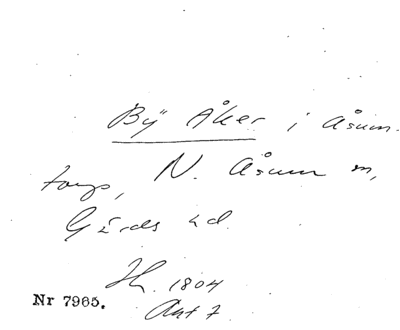 Bÿ Åker i Åsum
torp, N. Åsum m,
Gärds hd.
H. 1804
Akt 7
Nr 7965.